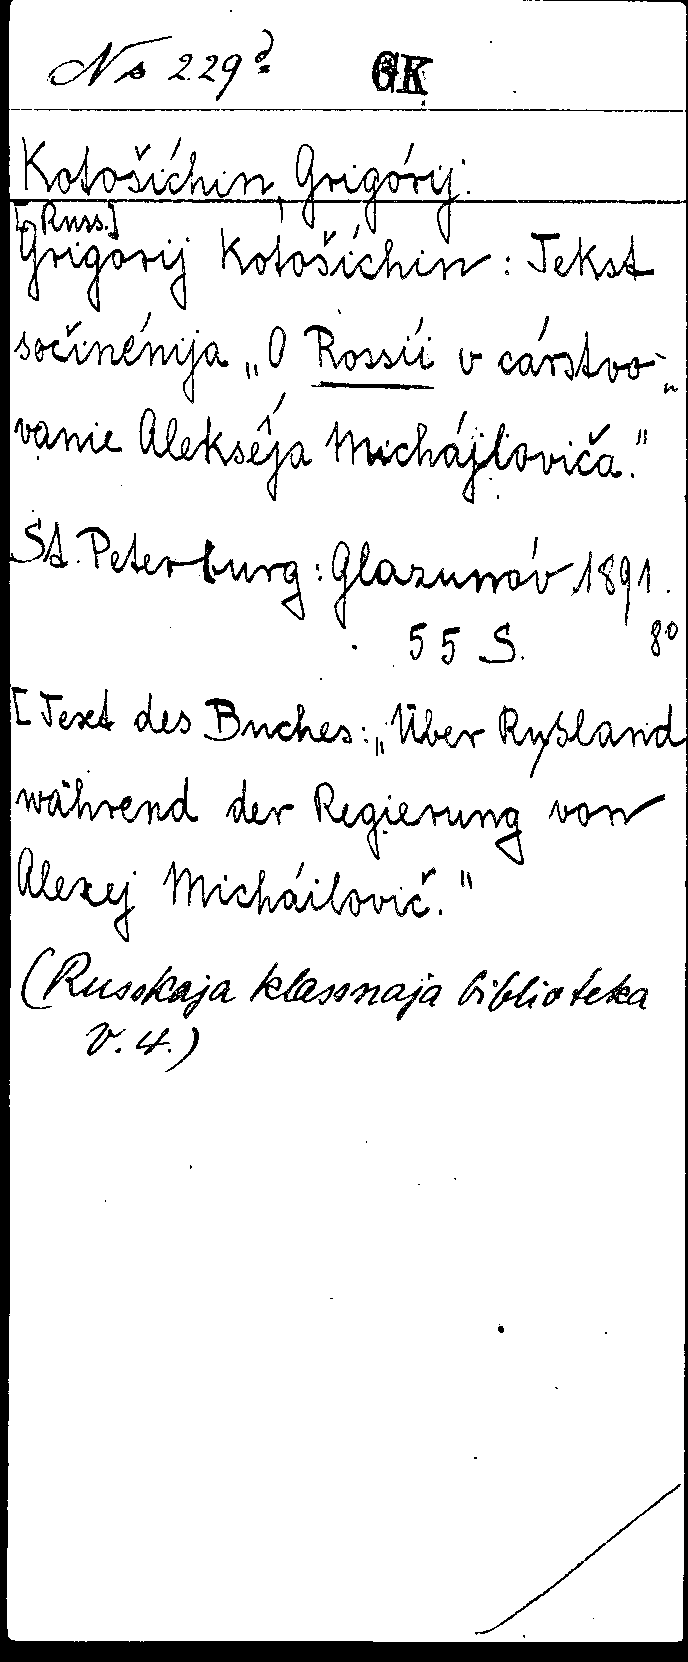 Ns 229ᵈ GK
Kotošíchin, Grigórij.
[Russ.]
Grigórij Kotošíchin: Tekst
sočinénija „O Rossíi v cárstvo-
vanie Alekséja Michájloviča."
St. Peterburg: Glazunóv 1891.
55 S. 8°
[Text des Buches: „Über Rußland
während der Regierung von
Alexej Micháilovič."
(Russkaja klassnaja biblioteka
V. 4.)